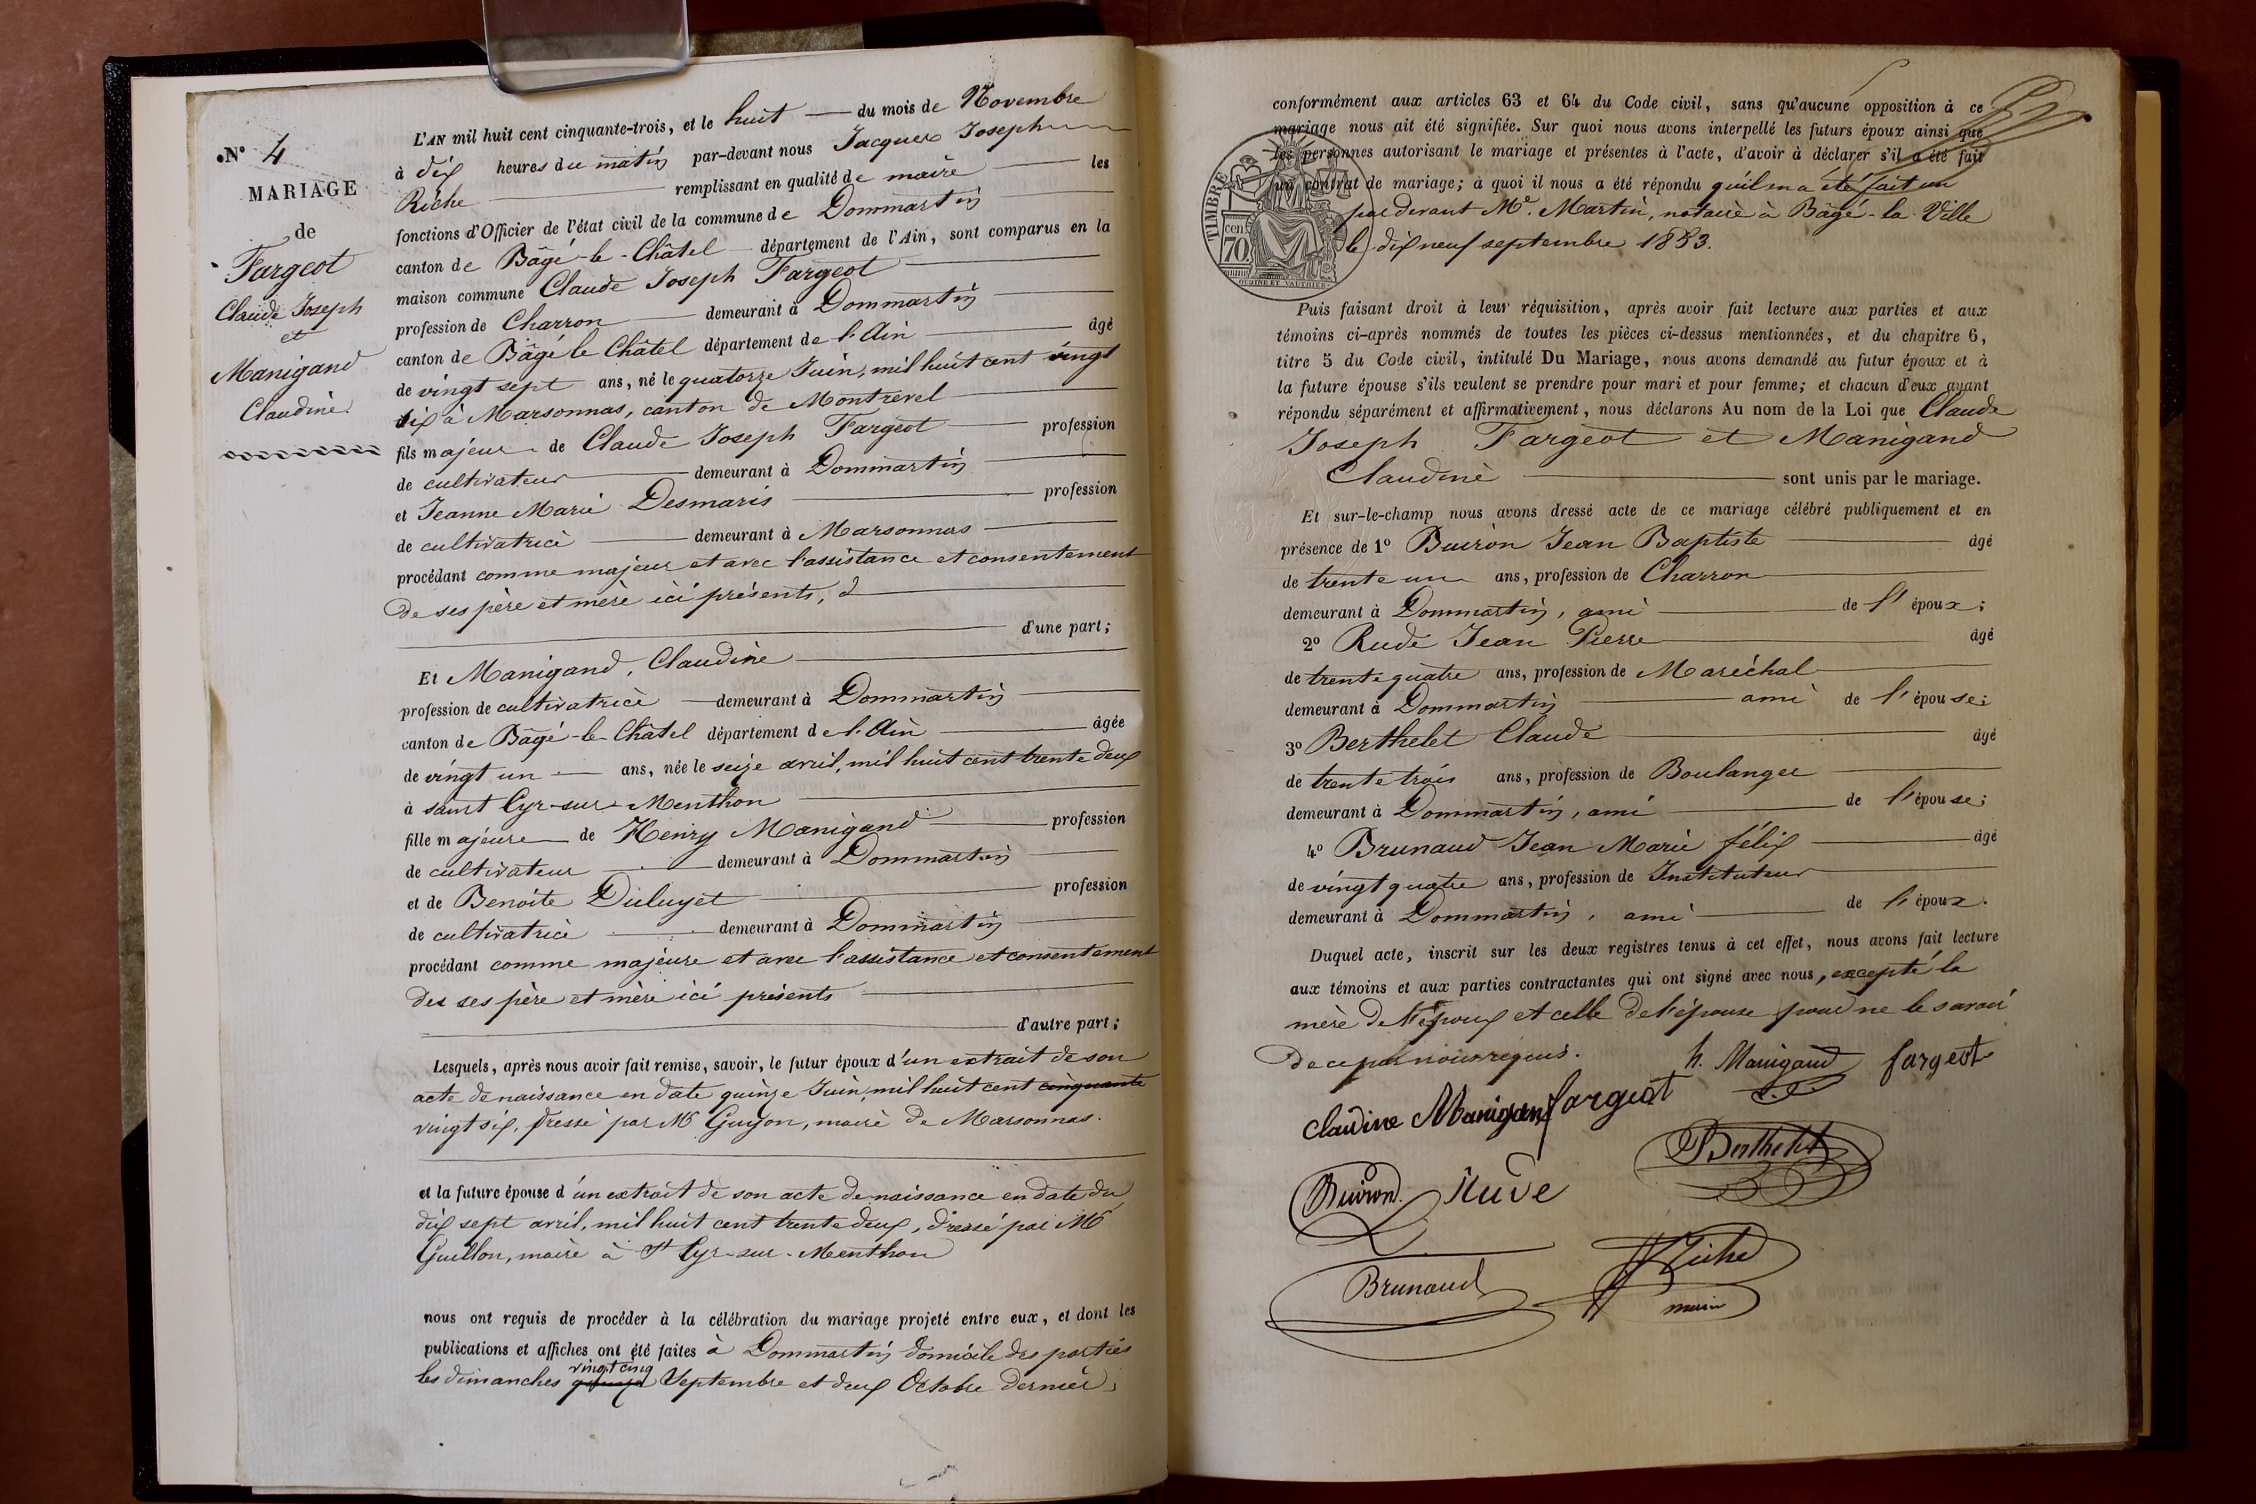 N° 4
MARIAGE
de
Fargeot
Claude Joseph
et
Manigand
Claudine
L'AN mil huit cent cinquante-trois, et le huit du mois de Novembre
à dix heures du matin par-devant nous Jacques Joseph
Riche remplissant en qualité de maire les
fonctions d'Officier de l'état civil de la commune de Dommartin
canton de Bâgé-le-Châtel département de l'Ain, sont comparus en la
maison commune Claude Joseph Fargeot
profession de Charron demeurant à Dommartin
canton de Bâgé le Châtel département de l'Ain âgé
de vingt sept ans, né le quatorze Juin, mil huit cent vingt
six à Marsonnas, canton de Montrevel
fils majeur de Claude Joseph Fargeot profession
de cultivateur demeurant à Dommartin
et Jeanne Marie Desmaris profession
de cultivatrice demeurant à Marsonnas
procédant comme majeur et avec l'assistance et consentement
de ses père et mère ici présents,
d'une part;
Et Manigand, Claudine
profession de cultivatrice demeurant à Dommartin
canton de Bâgé-le-Châtel département de l'Ain âgée
de vingt un ans, née le seize avril, mil huit cent trente deux
à saint Cyr-sur-Menthon
fille majeure de Henry Manigand profession
de cultivateur demeurant à Dommartin
et de Benoite Duluyet profession
de cultivatrice demeurant à Dommartin
procédant comme majeure et avec l'assistance et consentement
des ses père et mère ici présents
d'autre part;
Lesquels, après nous avoir fait remise, savoir, le futur époux d'un extrait de son
acte de naissance en date quinze Juin, mil huit cent cinquante
vingt six, dressé par Mr Guyon, maire de Marsonnas.
et la future épouse d'un extrait de son acte de naissance en date du
dix sept avril, mil huit cent trente deux, dressé par Mr
Guillon, maire à St Cyr-sur-Menthon
nous ont requis de procéder à la célébration du mariage projeté entre eux, et dont les
publications et affiches ont été faites à Dommartin domicile des parties
vingt cinq
les dimanches Septembre et deux Octobre dernier,
conformément aux articles 63 et 64 du Code civil, sans qu'aucune opposition à ce
mariage nous ait été signifiée. Sur quoi nous avons interpellé les futurs époux ainsi que
les personnes autorisant le mariage et présentes à l'acte, d'avoir à déclarer s'il a été fait
un contrat de mariage; à quoi il nous a été répondu qu'il en a été fait un
par devant Me. Martin, notaire à Bâgé-la-Ville
le dix neuf septembre 1853.
TIMBRE
70 cen.
OUDINE ET VAUTHIER
Puis faisant droit à leur réquisition, après avoir fait lecture aux parties et aux
témoins ci-après nommés de toutes les pièces ci-dessus mentionnées, et du chapitre 6,
titre 5 du Code civil, intitulé Du Mariage, nous avons demandé au futur époux et à
la future épouse s'ils veulent se prendre pour mari et pour femme; et chacun d'eux ayant
répondu séparément et affirmativement, nous déclarons Au nom de la Loi que Claude
Joseph Fargeot et Manigand
Claudine sont unis par le mariage.
Et sur-le-champ nous avons dressé acte de ce mariage célébré publiquement et en
présence de 1° Buiron Jean Baptiste âgé
de trente un ans, profession de Charron
demeurant à Dommartin, ami de l'époux;
2° Rude Jean Pierre âgé
de trente quatre ans, profession de Maréchal
demeurant à Dommartin ami de l'épouse;
3° Berthelet Claude âgé
de trente trois ans, profession de Boulanger
demeurant à Dommartin, ami de l'épouse;
4° Brunaud Jean Marie félix âgé
de vingt quatre ans, profession de Instituteur
demeurant à Dommartin, ami de l'époux.
Duquel acte, inscrit sur les deux registres tenus à cet effet, nous avons fait lecture
aux témoins et aux parties contractantes qui ont signé avec nous, excepté la
mère de l'époux et celle de l'épouse pour ne le savoir
de ce par nous requis.
h. Manigand fargeot
Claudine Manigand fargeot
Berthelet
Buiron Rude
Brunaud Riche
maire